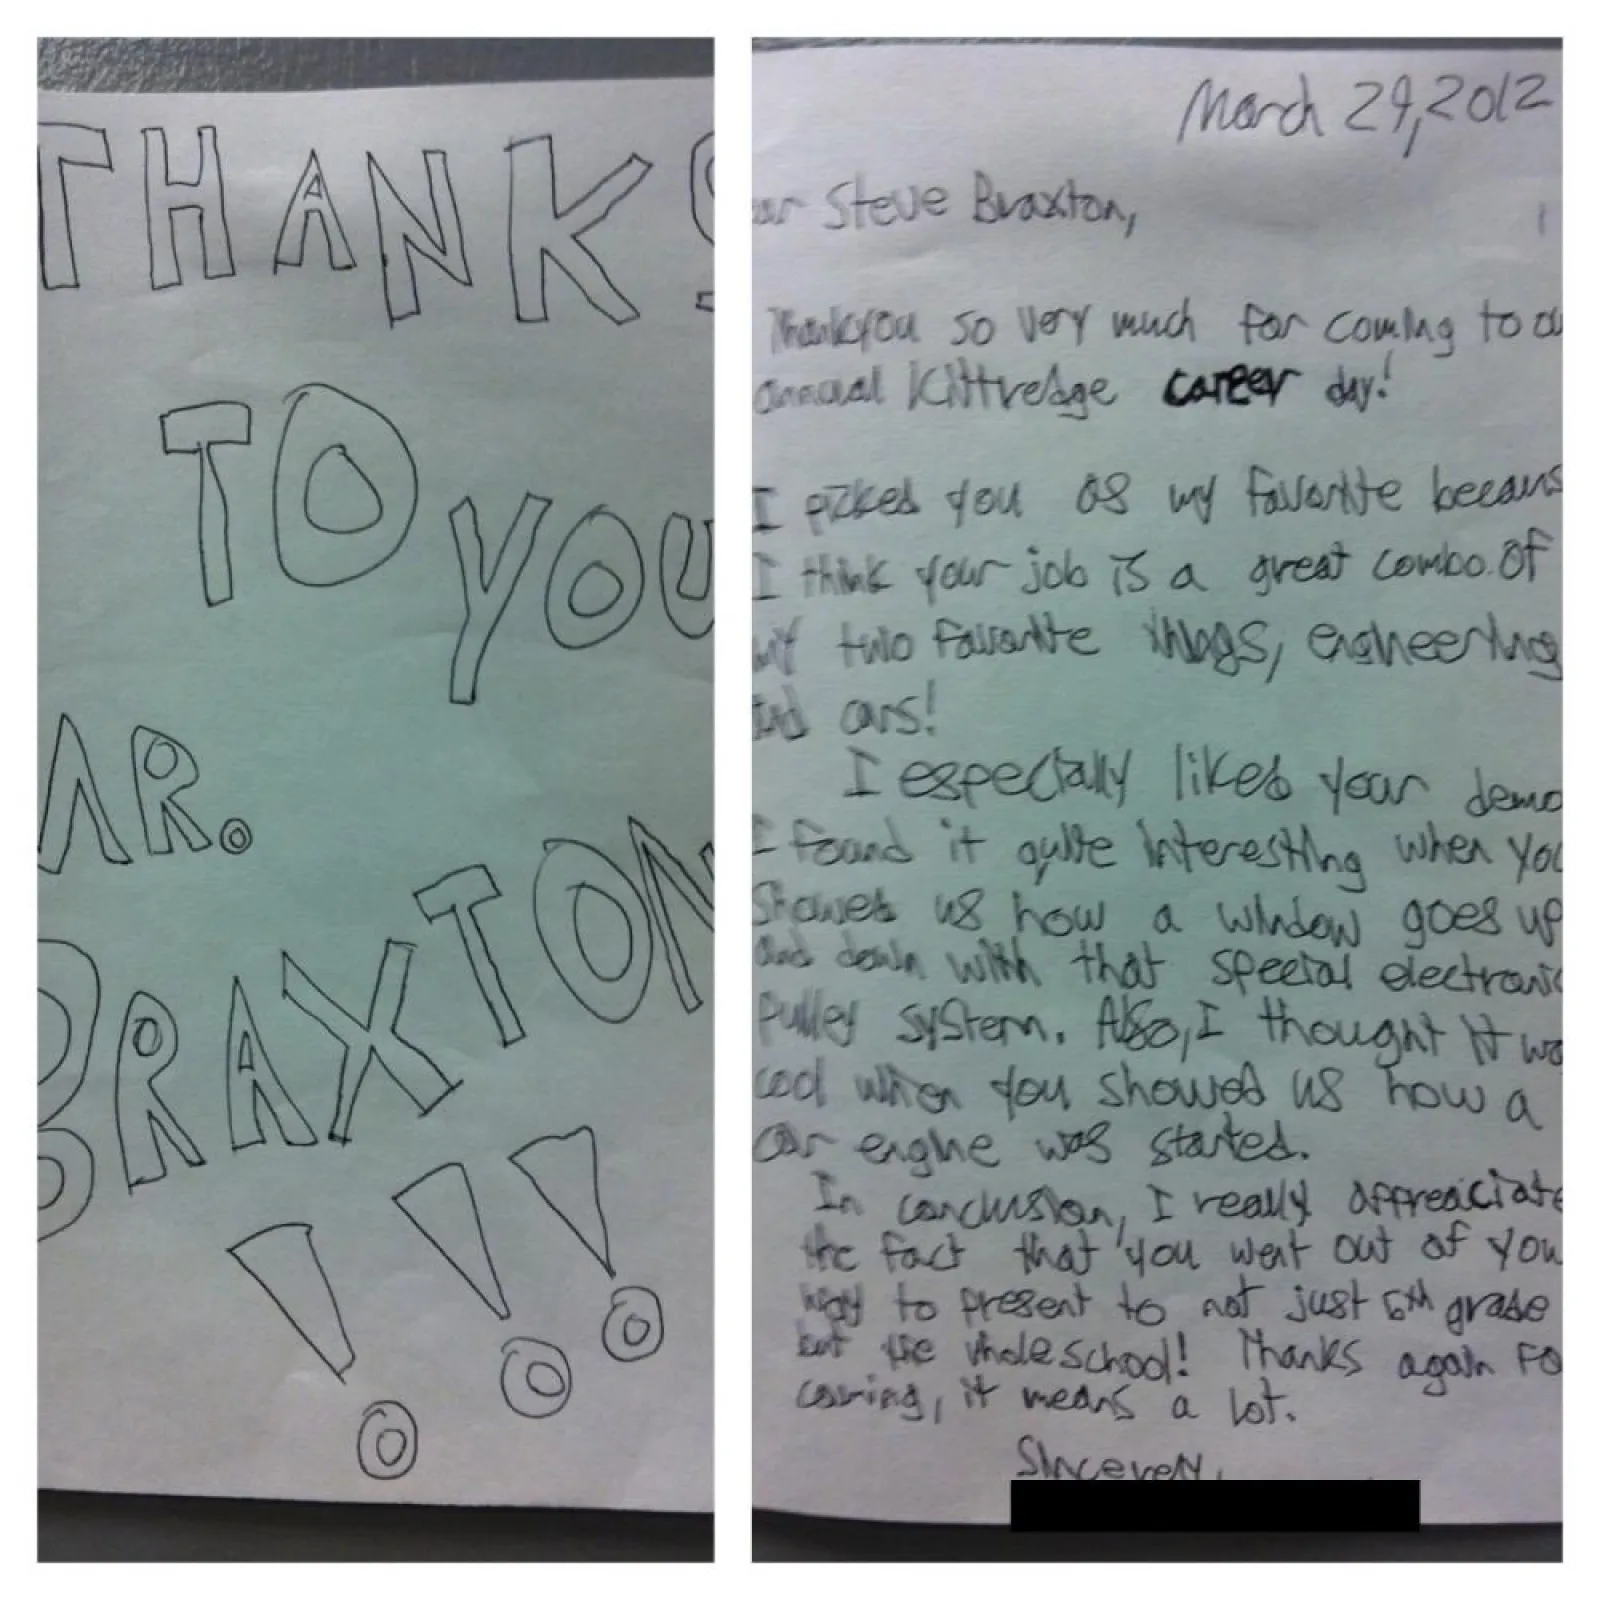 THANKS
TO YOU
MR.
BRAXTON
!!!
March 29, 2012
ar Steve Braxton,
Thankyou so very much for coming to ou
annual Kittredge career day!
I picked you as my favorite becaus
I think your job is a great combo of
my two favorite things, engineering
and cars!
I especially liked your demo
I found it quite interesting when you
showed us how a window goes up
and down with that special electronic
pulley system. Also, I thought it wa
cool when you showed us how a
car engine was started.
In conclusion, I really appreaciate
the fact that you went out of you
way to present to not just 6th grade
but the whole school! Thanks again Fo
coming, it means a lot.
Sincerely,